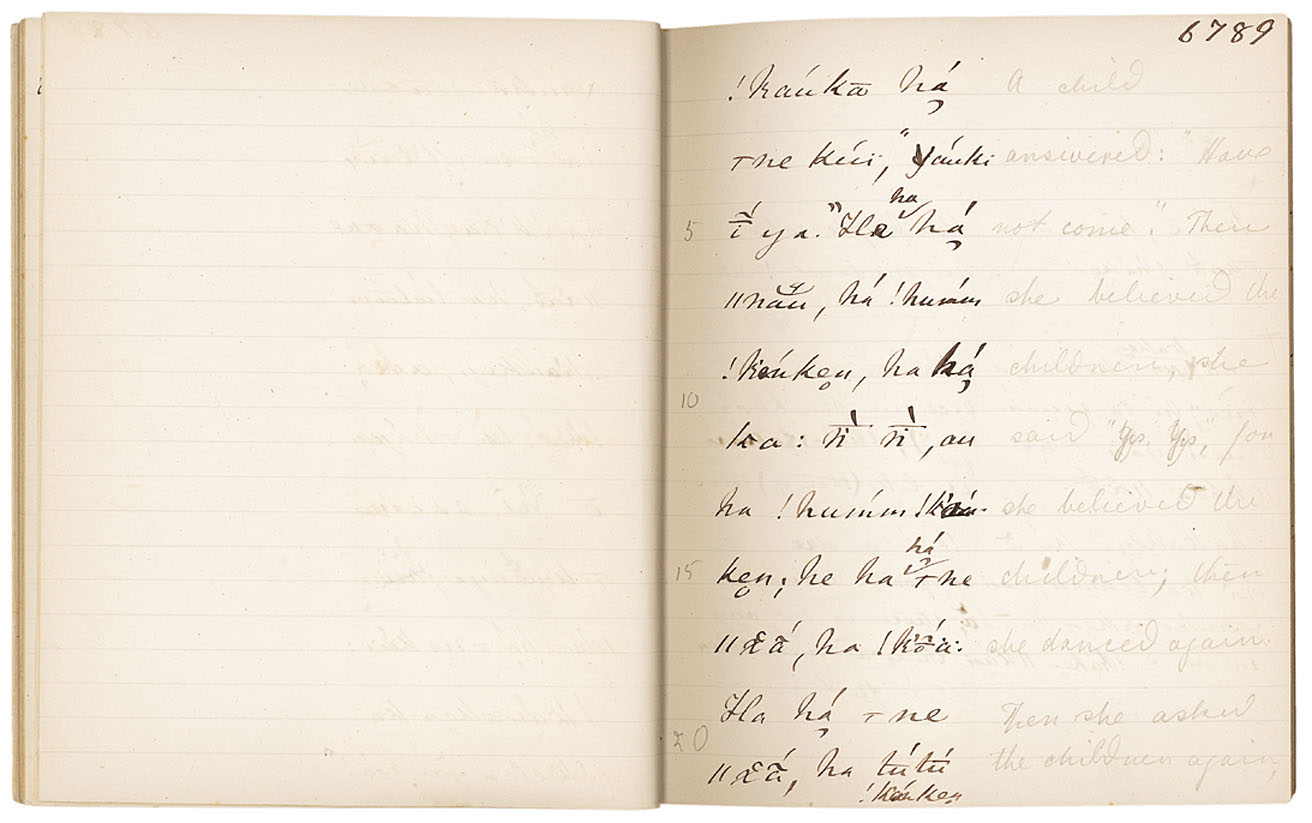 6789
!kaúka há̤ A child
ne kúi, " yáuki answered: "Have
5 ī́ ya." Ha ha há̤ not come". Then
ǁnāŭ, há !humḿ she believed the
!káúken, ha há̤ children, she
10
ka: n̄ì n̄ì, au said "Yes. Yes", for
ha !humḿm !káú- she believed the
15 ken; he ha há ne children; then
ha !kóä́. she danced again.
Ha há̤ ne Then she asked
20 ha tútú the children again,
!káúken